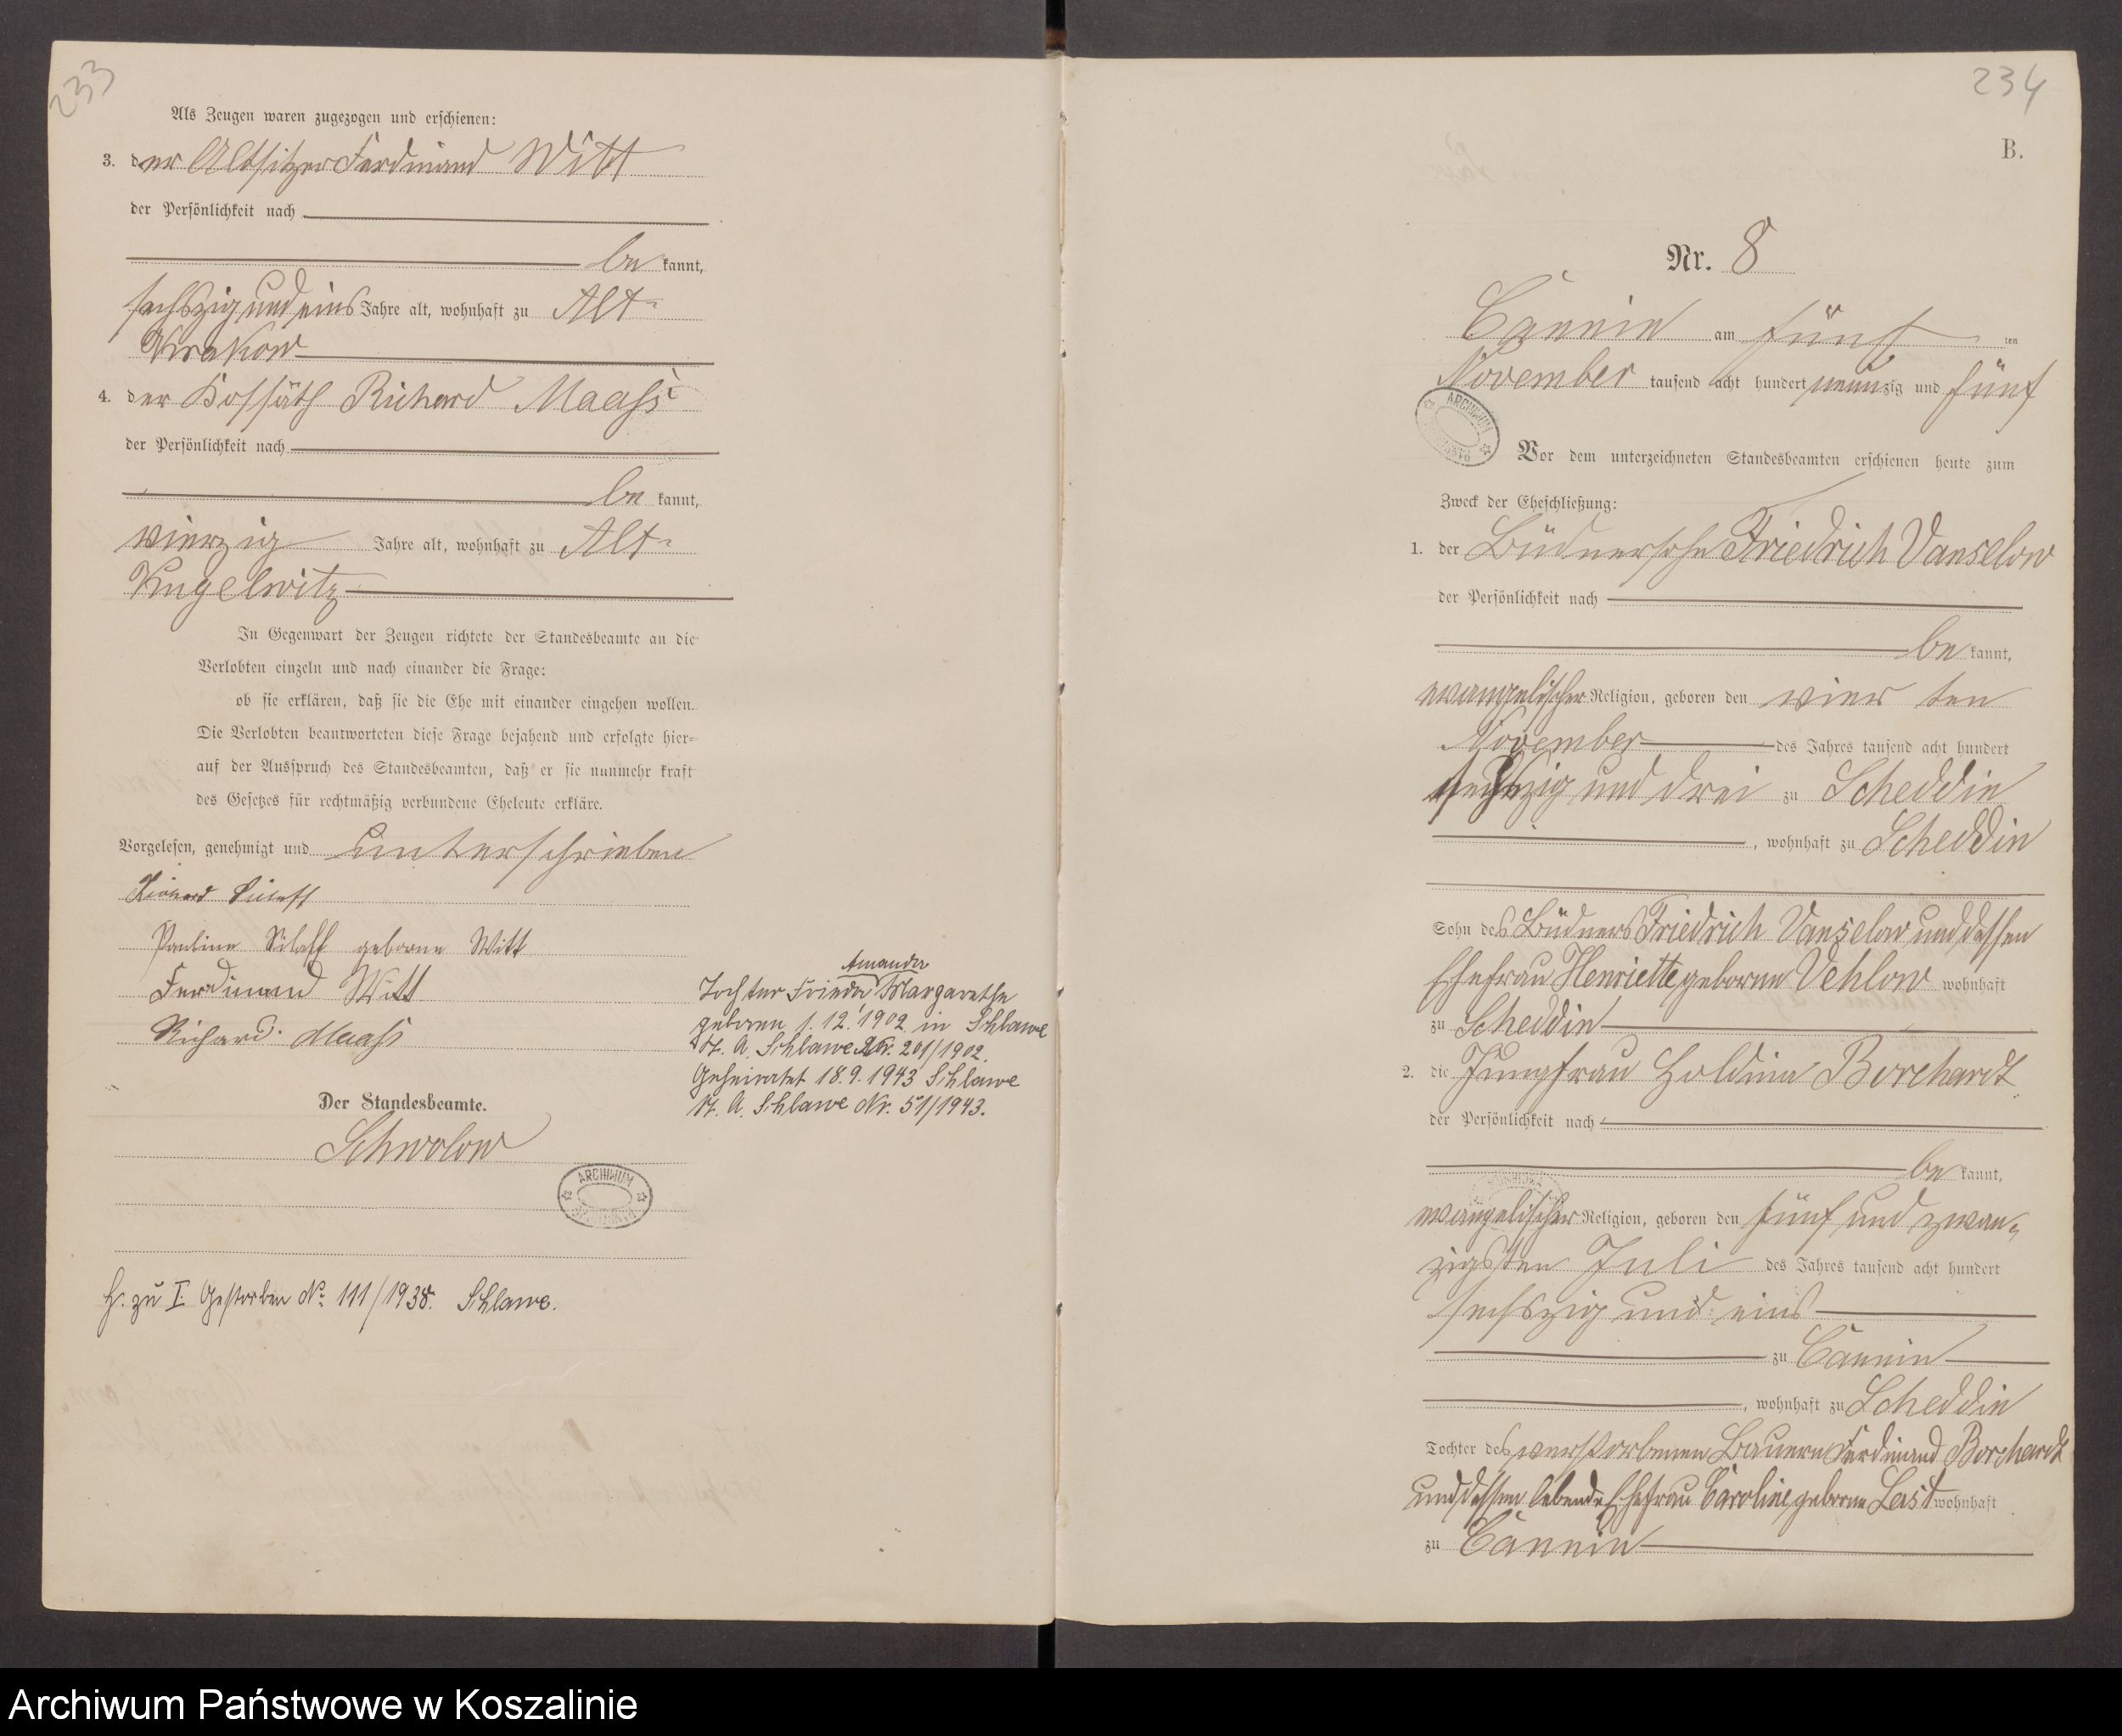 233
Als Zeugen waren zugezogen und erschienen:
3. der Altsitzer Ferdinand Witt
der Persönlichkeit nach
be kannt,
sechszig und eins Jahre alt, wohnhaft zu Alt-
Krakow
4. der Kossäth Richard Maass
der Persönlichkeit nach
be kannt,
vierzig Jahre alt, wohnhaft zu Alt-
Kugelwitz
In Gegenwart der Zeugen richtete der Standesbeamte an die
Verlobten einzeln und nach einander die Frage:
ob sie erklären, daß sie die Ehe mit einander eingehen wollen.
Die Verlobten beantworteten diese Frage bejahend und erfolgte hier-
auf der Ausspruch des Standesbeamten, daß er sie nunmehr kraft
des Gesetzes für rechtmäßig verbundene Eheleute erkläre.
Vorgelesen, genehmigt und unterschrieben
Pauline Silaff geborne Witt
Ferdinand Witt
Richard Maaß
Der Standesbeamte.
Schwolow
ARCHIWUM
H. zu I. Gestorben No. 111/1938. Schlawe.
Amanda
Tochter Frieda Margarethe
geboren 1.12.1902 in Schlawe
St. A. Schlawe Nr. 201/1902.
Geheiratet 18.9.1943 Schlawe
St. A. Schlawe Nr. 51/1943.
234
B.
Nr. 8
Cannin am fünf ten
November tausend acht hundert neunzig und fünf
ARCHIWUM
Vor dem unterzeichneten Standesbeamten erschienen heute zum
Zweck der Eheschließung:
1. der Büdnersohn Friedrich Vanselow
der Persönlichkeit nach
be kannt,
evangelischer Religion, geboren den vier ten
November des Jahres tausend acht hundert
sechszig und drei zu Scheddin
, wohnhaft zu Scheddin
Sohn des Büdners Friedrich Vanselow und dessen
Ehefrau Henriette geborne Vehlow wohnhaft
zu Scheddin
2. die Jungfrau Holdina Borchardt
der Persönlichkeit nach
be kannt,
evangelischer Religion, geboren den fünf und zwan-
zigsten Juli des Jahres tausend acht hundert
sechszig und eins
zu Cannin
, wohnhaft zu Scheddin
Tochter des verstorbenen Bauern Ferdinand Borchardt
und dessen lebende Ehefrau Caroline geborne Last wohnhaft
zu Cannin
Archiwum Państwowe w Koszalinie